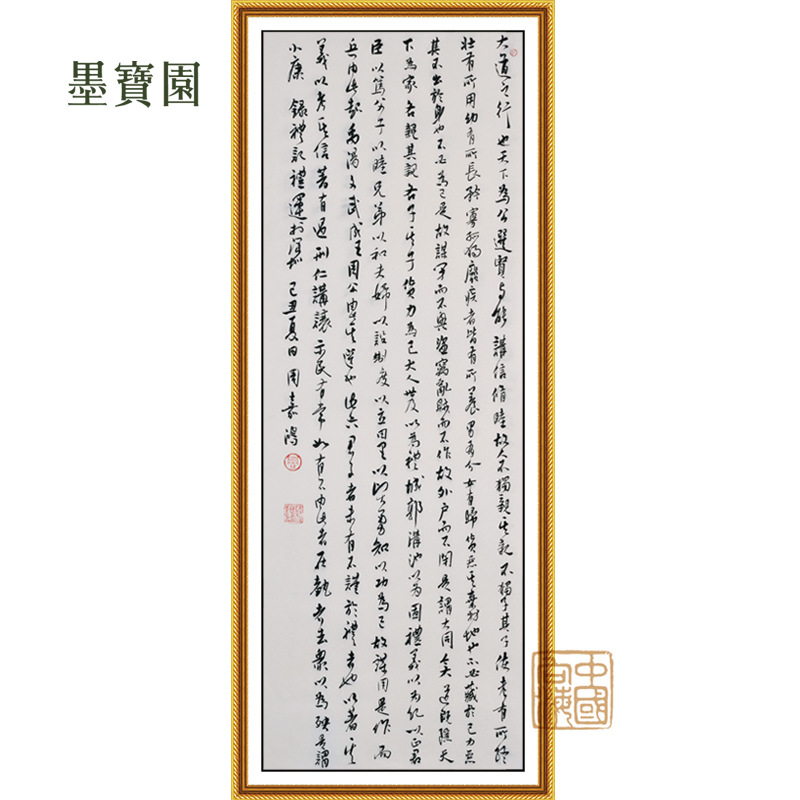 墨寶園
大道之行也天下為公選賢與能講信脩睦故人不獨親其親不獨子其子使老有所終
壯有所用幼有所長矜寡孤獨廢疾者皆有所養男有分女有歸貨惡其棄於地也不必藏於己力惡
其不出於身也不必為己是故謀閉而不興盜竊亂賊而不作故外戶而不閉是謂大同今大道既隱天
下為家各親其親各子其子貨力為己大人世及以為禮城郭溝池以為固禮義以為紀以正君
臣以篤父子以睦兄弟以和夫婦以設制度以立田里以賢勇知以功為己故謀用是作而
兵由此起禹湯文武成王周公由此其選也此六君子者未有不謹於禮者也以著其
義以考其信著有過刑仁講讓示民有常如有不由此者在埶者去眾以為殃是謂
小康 錄禮記禮運於深圳 己丑夏日周嘉鴻
中國